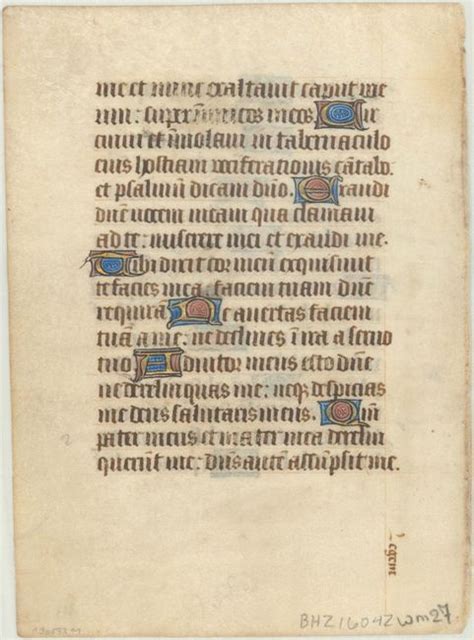 me et nunc exaltavit caput me
um: super inīmicos meos Cir
cuivi et īmolavi in tabernaculo
eius hostiam vociferationis cātabo.
et psalmū dicam dn̄o. Exaudi
dn̄e vocem meam qua clamavi
ad te: miserere mei et exaudi me.
Tibi dixit cor meū exquisivit
te facies mea: faciem tuam dn̄e
requirā Ne avertas faciem
tuā a me: ne declines ī ira a servo
tuo Adiutor meus esto dn̄e
ne derelinquas me: neqꝫ despicias
me deus salutaris meus. Qm̄
pater meus et mater mea derelin
querūt me: dn̄s autē assūpsit me.
BHZ1604Z wm27